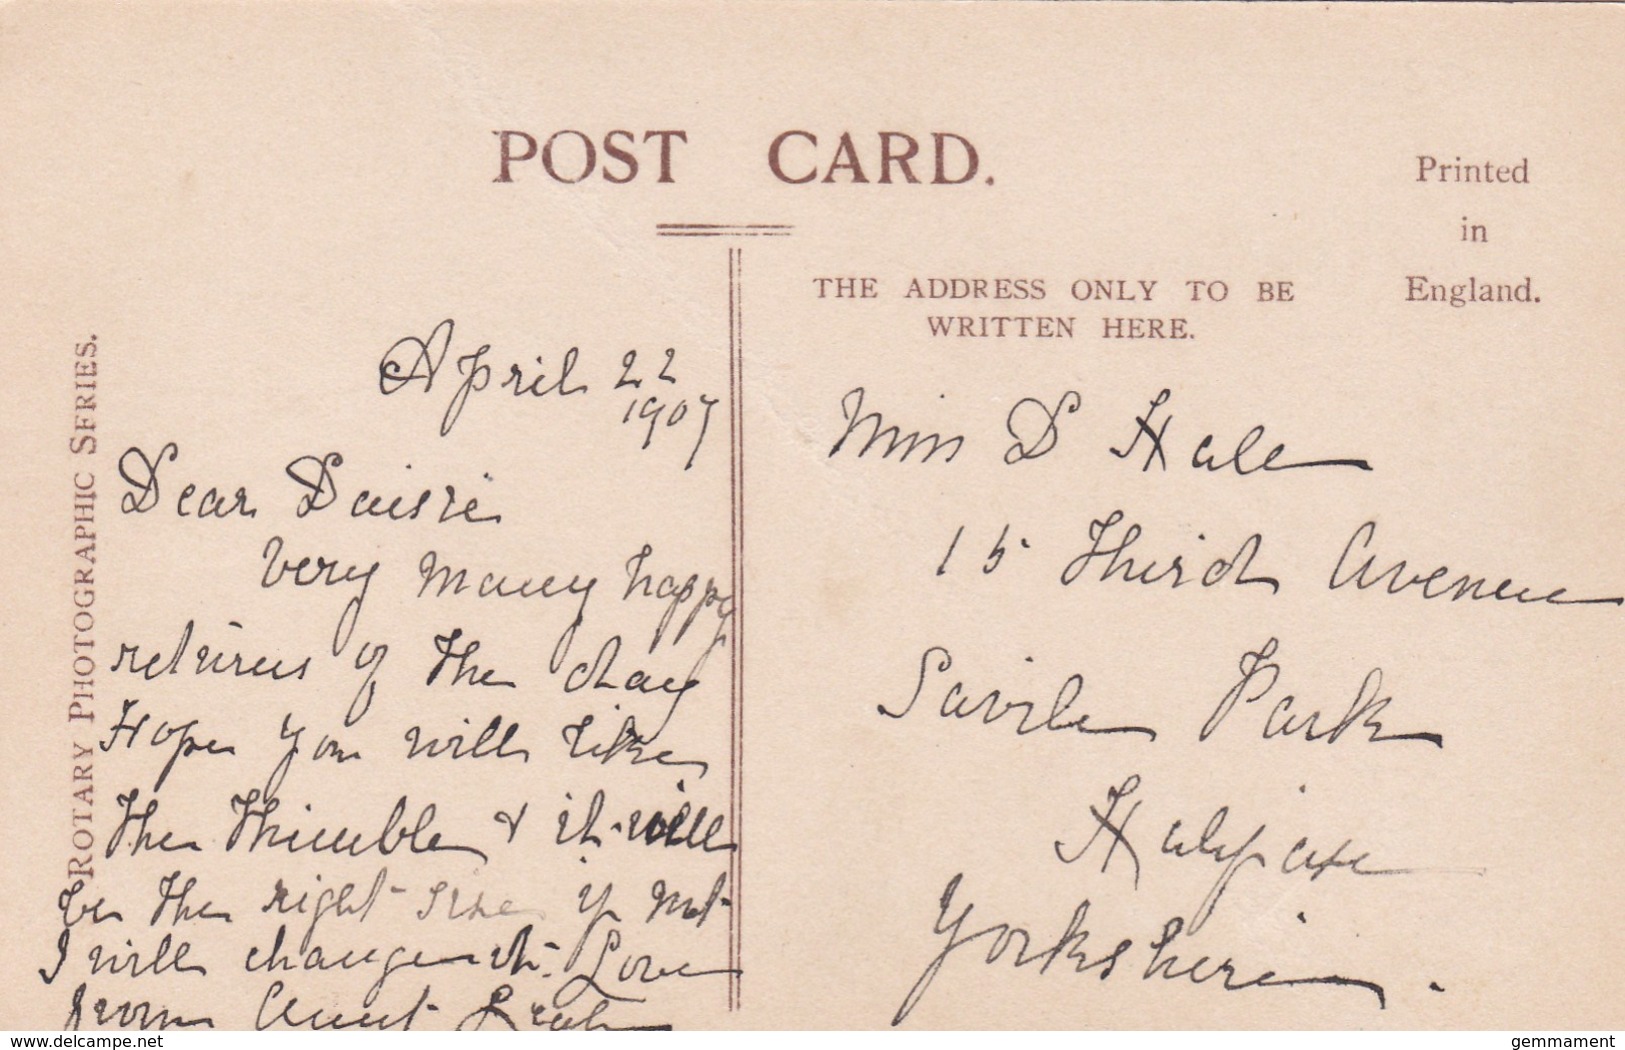 POST CARD.
Printed
in
England.
THE ADDRESS ONLY TO BE
WRITTEN HERE.
ROTARY PHOTOGRAPHIC SERIES.
April 22
1907
Dear Daisie
Very many happy
returns of the day
Hope you will like
the thimble & it will
be the right size if not
I will change it. Love
from Aunt
Miss D Hale
15 Third Avenue
Savile Park
Halifax
Yorkshire.
www.delcampe.net
gemmament